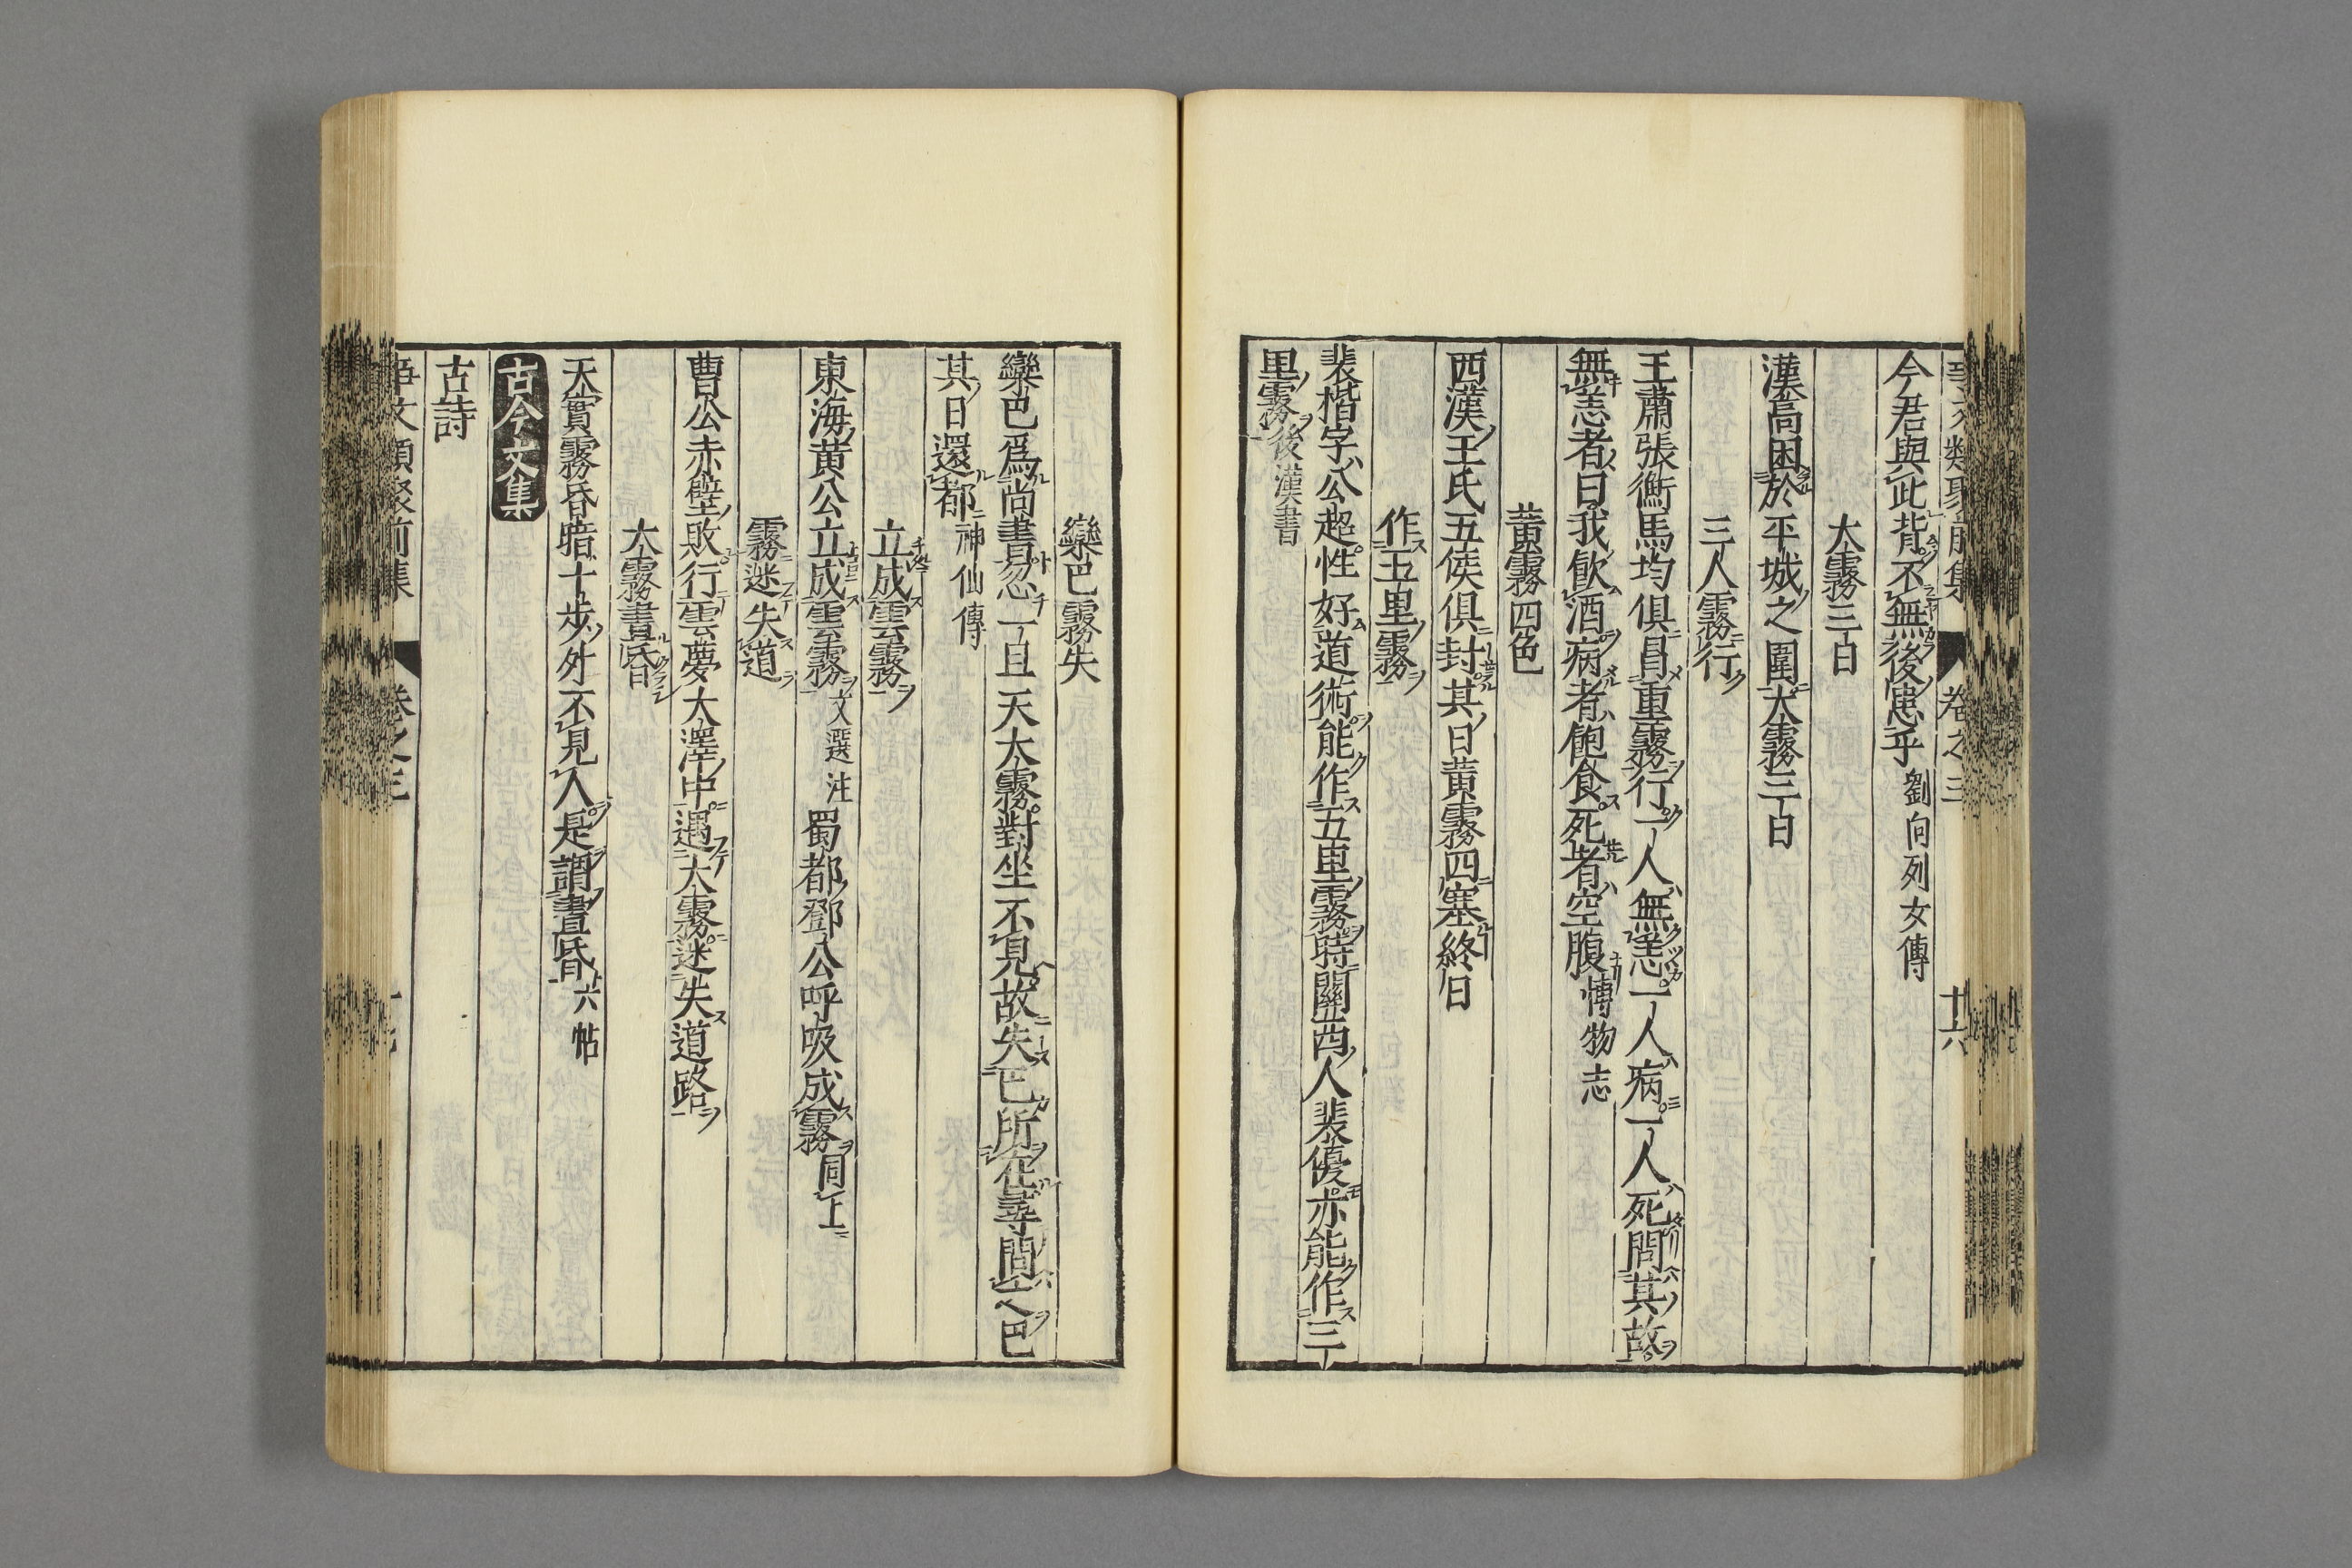 事文類聚前集 卷之三 廿六
今君與此背不無後患乎劉向列女傳
大霧三日
漢高困於平城之圍大霧三日
三人霧行
王肅張衡馬均俱冒重霧行一人無恙一人病一人死問其故
無恙者曰我飮酒病者飽食死者空腹博物志
黄霧四色
西漢王氏五侯俱封其日黄霧四塞終日
作五里霧
裴楷字公超性好道術能作五里霧時關西人裴優亦能作三
里霧後漢書
欒巴霧失
欒巴爲尚書忽一旦天大霧對坐不見故失巴所在尋問之巴
其日還都神仙傳
立成雲霧
東海黄公立成雲霧文選注蜀都鄧公呼吸成霧同上
霧迷失道
曹公赤壁敗行雲夢大澤中遇大霧迷失道路
大霧晝昏
天寶霧昏暗十步外不見人是謂晝昏六帖
古今文集
古詩
事文類聚前集 卷之三